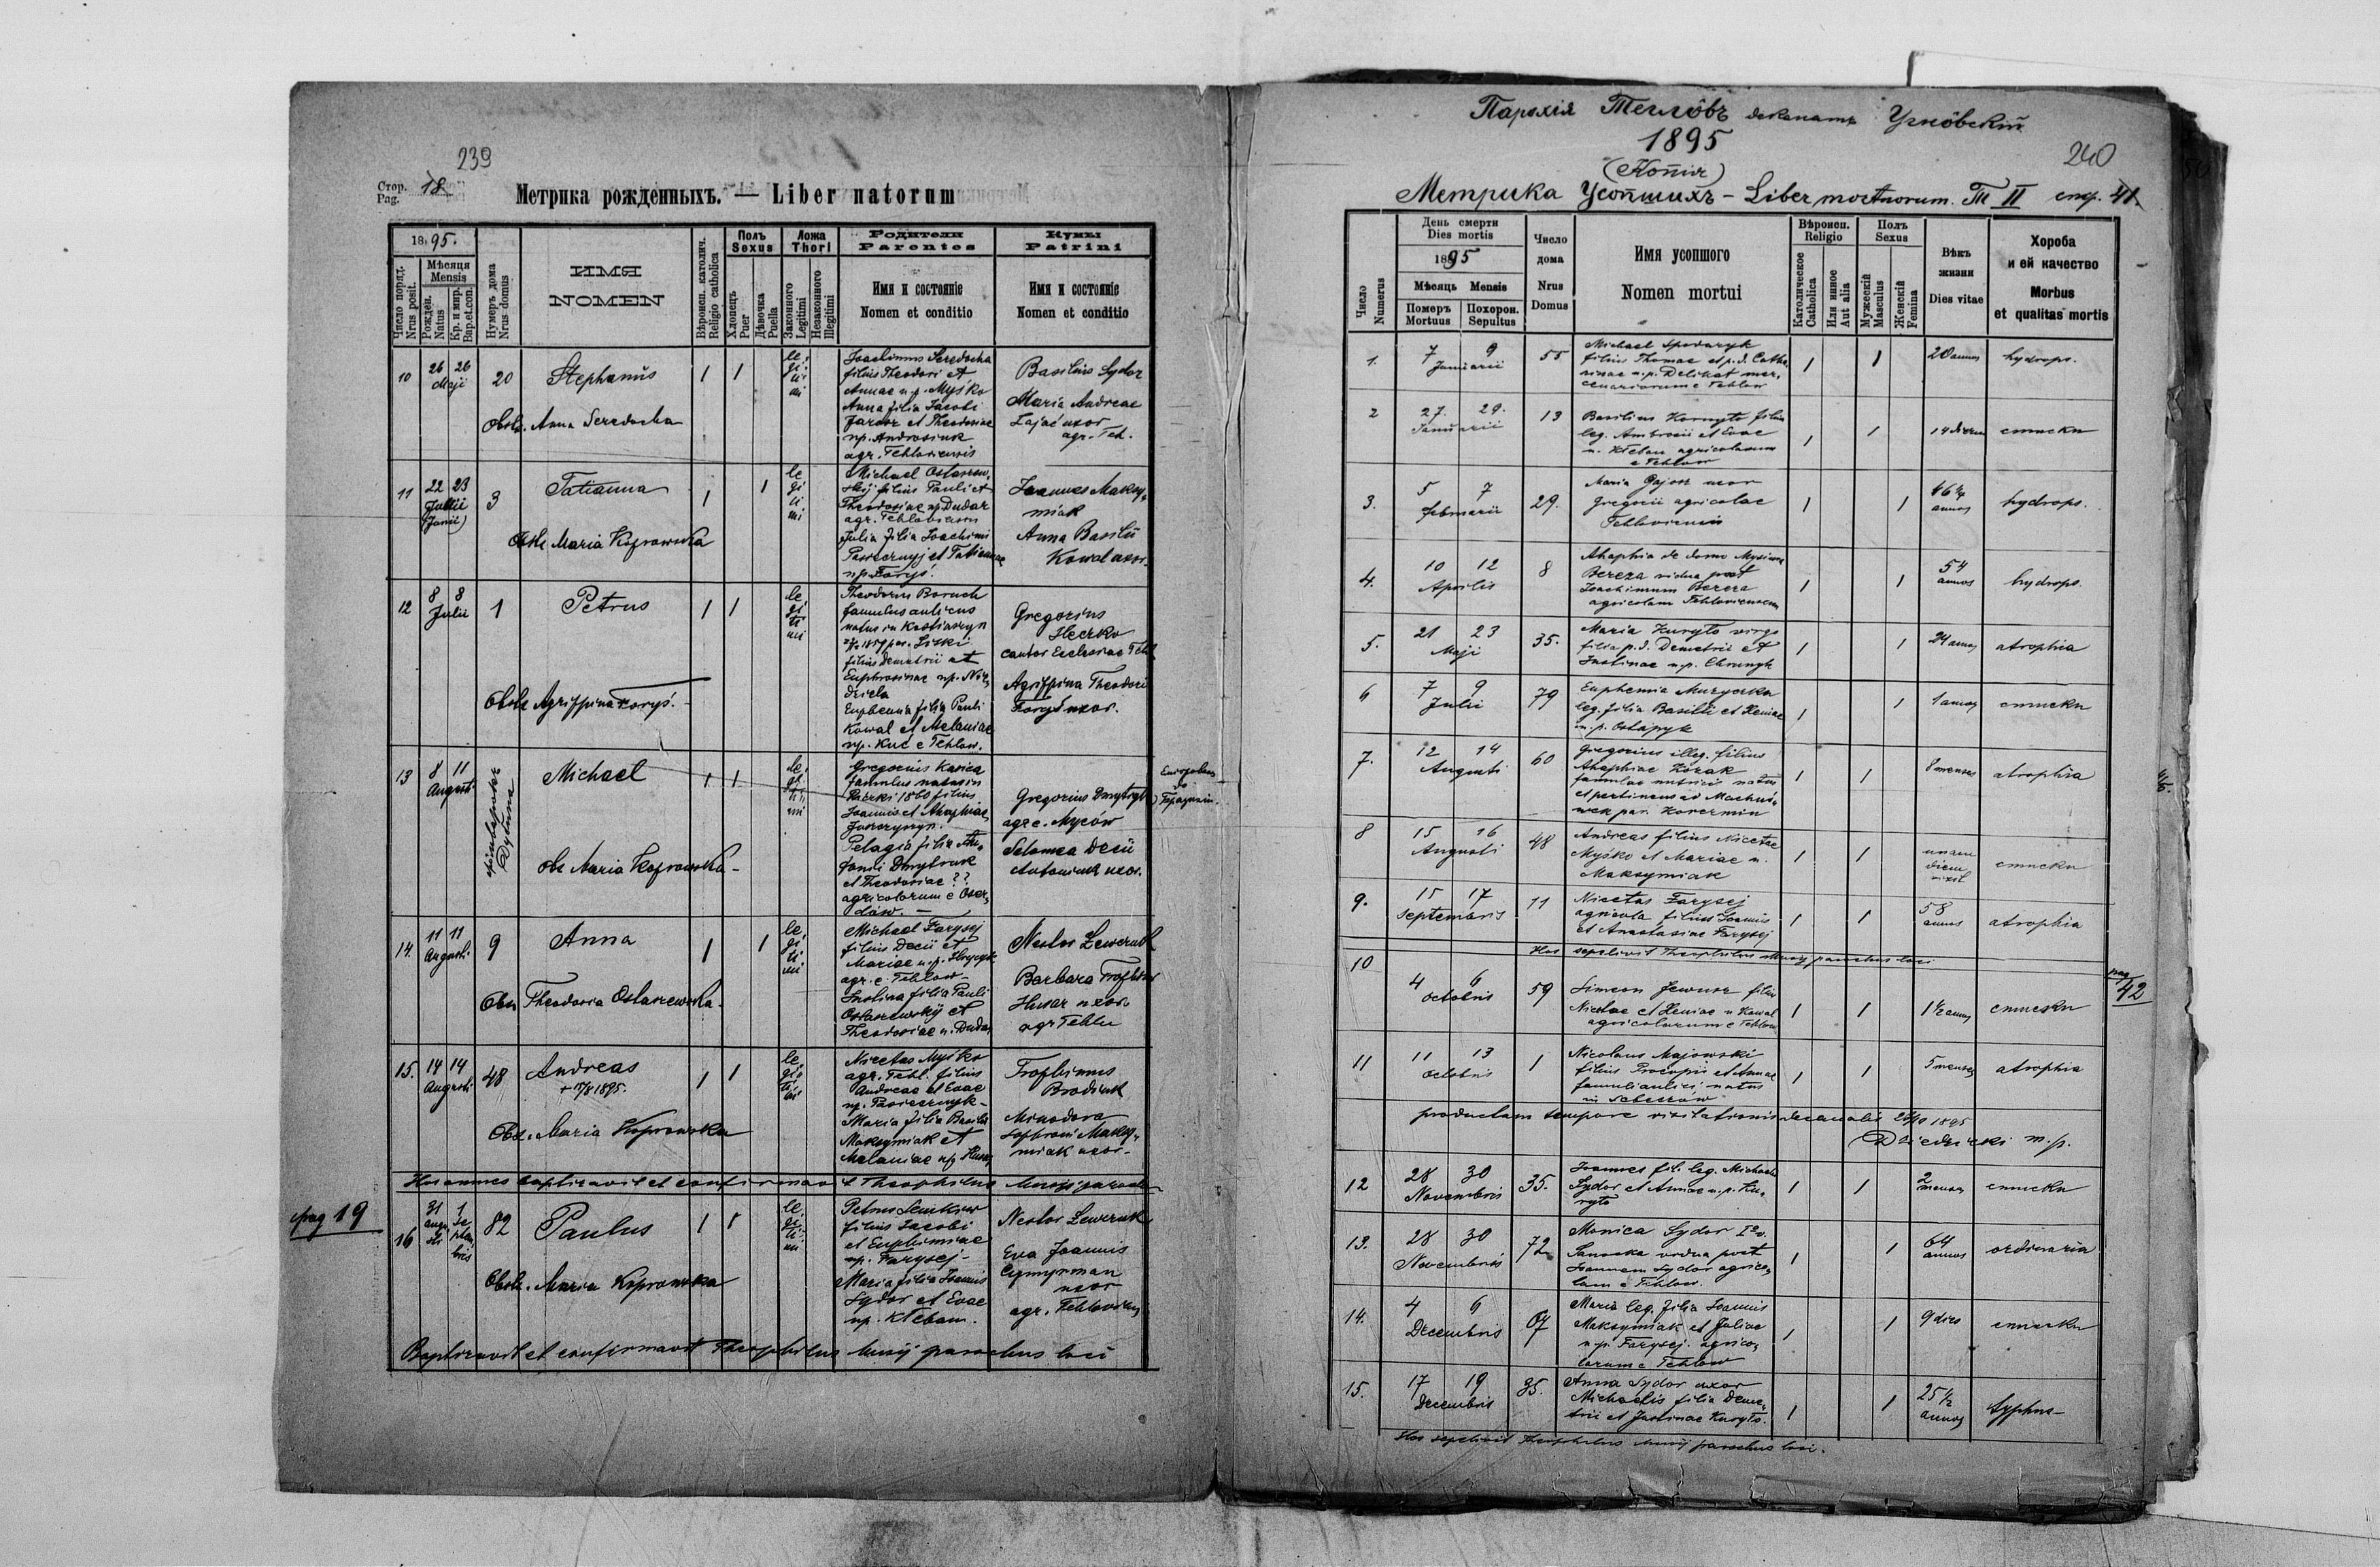 239
Стор. Pag. 18
Метрика рожденныхъ. — Liber natorum
1895.
Число поряд. Nrus posit.
Мѣсяця Mensis
Рожден. Natus
Кр. и мир. Bap. et. con.
Нумеръ дома Nrus domus
ИМЯ
NOMEN
Вѣроисп. католич. Religio catholica
Полъ Sexus
Хлопецъ Puer
Дѣвочка Puella
Ложа Thori
Законного Legitimi
Незаконного Illegitimi
Родители
Parentes
Имя и состояніе
Nomen et conditio
Кумы
Patrini
Имя и состояніе
Nomen et conditio
10
26 26
Maji
20
Stephanus
1 1
le
gi
ti
mi
Joachimus Seredocha
filius Theodori et
Annae n.p. Myśko
Anna filia Jacobi
et Theodosiae
np. Androsiuk
agr. Tehloviensis
Basilius Sydor
Maria Andreae
Zając uxor
agr. Teh.
Obst. Anna Seredocha
11
22 23
Julii
(Junii)
3
Tatianna
1 1
le
gi
ti
mi
Michael Ostaszew,
skij filius Pauli et
Theodosiae np Dudar
agr. Tehloviensis
Julia filia Joachimi
Pasiecznyj et Tatiannae
np. Faryś.
Joannes Maksy,
miak
Anna Basilii
Kowal uxor.
Obst. Maria Koprowska
12
8 8
Julii
1
Petrus
1 1
le
gi
ti
mi
Theodorus Boruch
famulus aulicus
natus in Kostiaszyn
1857 par. Liski
filius Demetrii et
Euphrosinae np. Nie,
dziela
Euphemia filia Pauli
Kowal et Melaniae
np. Kuć e Tehlow.
Gregorius
Heczko
cantor Ecclesiae Tehl.
Agrippina Theodori
Faryś uxor.
Obst. Agrippina Faryś.
13
8 11
Augusti
Dytyna
Michael
1 1
le
gi
ti
mi
Gregorius Kasica
famulus natus in
1860 filius
Joannis et Ahaphiae
Juszczyszyn.
Pelagia filia
Dmytruk
et Theodosiae ??
agricolarum e Oser,
dów. —
Gregorius Dmytryk
agr e. Myców
Salomea Decii
Antoniuk uxor.
obs Maria Koprowska -
14.
11 11
Augusti
9
Anna
1 1
le,
gi
ti
mi
Michael Farysej
filius Decii et
Mariae n.p.
agr. e Tehlow -
Justina filia Pauli
Ostaszewskij et
Theodosiae n. Dudar
Nestor Lewczuk
Barbara
Husar uxor
agr Tehlo
Obs. Theodosia Ostaszewska -
15.
14 14
Augusti
48
Andreas
+ 15/8 1895.
1 1
le,
gi,
ti,
mi
Nicetas Myśko
agr. Tehl. filius
Andreae et Evae
np. Pasiecznyk -
Maria filia Basilii
Maksymiak et
Melaniae np Husar
Trophimus
Brodiuk
Minodora
Sophronii Maksy,
miak uxor -
Obst. Maria Koprowska
Hos omnes baptizavit et confirmavit Theophilus Musij parochus
pag 19
16
31 1
augu Se
sti ptem
bris
82
Paulus
1 1
le,
gi
ti
mi
Petrus Seńkiw
filius Jacobi
et Euphimiae
np. Farysej -
Maria filia Joannis
Sydor et Evae
np. Kłeban.
Nestor Lewczuk
Eva Joannis
Cymynman
uxor
agr. Tehloviens
Obst. Maria Koprowska
Baptizavit et confirmavit Theophilus Musij parochus loci
Парохія Тегловъ деканатъ Угнôвскій
1895
(Копія)
240
Метрика Усопшихъ - Liber mortuorum. Т II стр. 41.
Число Numerus
День смерти
Dies mortis
1895
Мѣсяць Mensis
Померъ Mortuus
Похорон. Sepultus
Число дома
Nrus Domus
Имя усопшого
Nomen mortui
Вѣроисп. Religio
Католическое Catholica
Или инное Aut alia
Полъ Sexus
Мужескій Masculus
Женскій Femina
Вѣкъ жизни
Dies vitae
Хороба
и ей качество
Morbus
et qualitas mortis
1.
7 9
Januarii
55
Michael Spodaryk
filius Thomae et p.d. Catha,
rinae n.p. Delikat mer,
cenariorum e Tehlow
1 1
20 annos
hydrops.
2
27. 29.
Januarii
13
Basilius Kornyło filius
leg. Ambrosii et Evae
n. Kłeban agricolarum
e Tehlow
1 1
14 dierum
3.
5 7
februarii
29.
Maria Gajosz uxor
Gregorii agricolae
Tehloviensis
1 1
46 annos
hydrops.
4.
10 12
Aprilis
8
Ahaphia de domo
Bereza vidua post
Joachimum Bereza
agricolam Tehloviensem
1 1
54
annos
hydrops.
5.
21 23
Maji
35.
Maria Kuryło virgo
filia p.d. Demetrii et
Justinae n.p. Chrungk
1 1
24 annos
atrophia
6
7 9
Julii
79
Euphemia Muzyczka
leg. filia Basilii et Xeniae
n.p. Ostapyk
1 1
1 annos
7.
12 14
Augusti
60
Gregorius illeg. filius
Ahaphiae Kozak
famulae natus
et pertinens ad Machnó,
wek par. Korczmin
1 1
8 menses
atrophia
8
15 16
Augusti
48
Andreas filius Nicetae
Myśko et Mariae n.
Maksymiak
1 1
unam
diem
vixit
9.
15 17
Septembris
11
Nicetas Farysej
agricola filius Joannis
et Anastasiae Farysej
1 1
58
annos
atrophia
Hos sepelivit Theophilus Musij parochus loci
pag
42
10
4 6
octobris
59
Simeon Jewusz filius
Nicolae et Xeniae n Kowal
agricolarum e Tehlow
1 1
1½ annos
11
11 13
octobris
1
Nicolaus Majowski
filius Procopii et Annae
famuli aulici natus
in Sebeczów
1 1
5 menses
atrophia
productam tempore visitationis decanalis 1895
Dziedzicki m.p.
12
28 30
Novembris
35.
Joannes fil. leg. Michaelis
Sydor et Annae n.p. Ku,
ryło
1 1
2
menses
13.
28 30
Novembris
72
Monica Sydor Io v.
Sanocka vidua post
Joannem Sydor agrico,
lam e Tehlow.
1 1
64
annos
ordinaria
14.
4 6
Decembris
Maria leg. filia Joannis
Maksymiak et Juliae
n.p. Farysej. agrico,
larum e Tehlow
1 1
9 dies
15.
17 19
Decembris
35.
Anna Sydor uxor
Michaelis filia Deme,
trii et Justinae Kuryło.
1 1
25 ½
annos
typhus -
Hos sepelivit Theophilus Musij parochus loci.